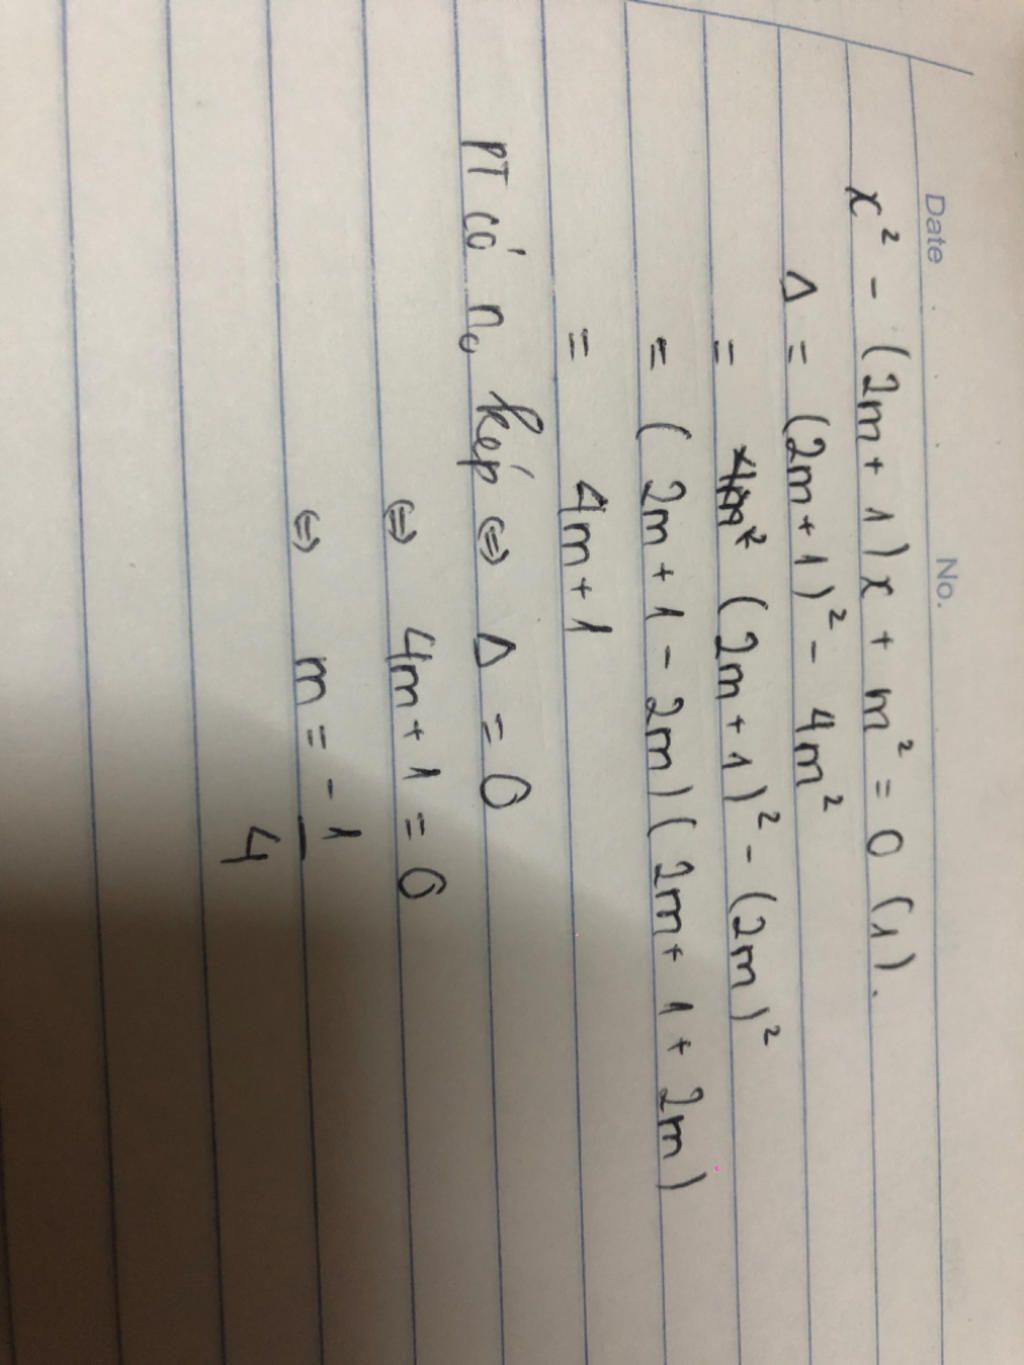 Date No.
x² - (2m + 1)x + m² = 0 (1).
Δ = (2m + 1)² - 4m²
= (2m + 1)² - (2m)²
= (2m + 1 - 2m) (2m + 1 + 2m)
= 4m + 1
PT có n₀ kép ⇔ Δ = 0
⇔ 4m + 1 = 0
⇔ m = -1/4